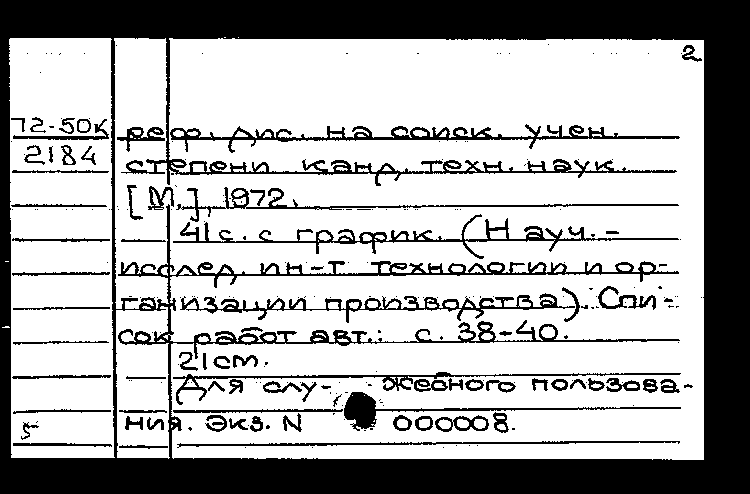 2
72-50к реф. дис. на соиск. учен.
2184 степени канд. техн. наук.
[М.], 1972.
41с. с график. (Науч.-
исслед. ин-т технологии и ор-
ганизации производства). Спи-
сок работ авт.: с. 38-40.
21см.
Для слу- жебного пользова-
5 ния. Экз. N 000008.